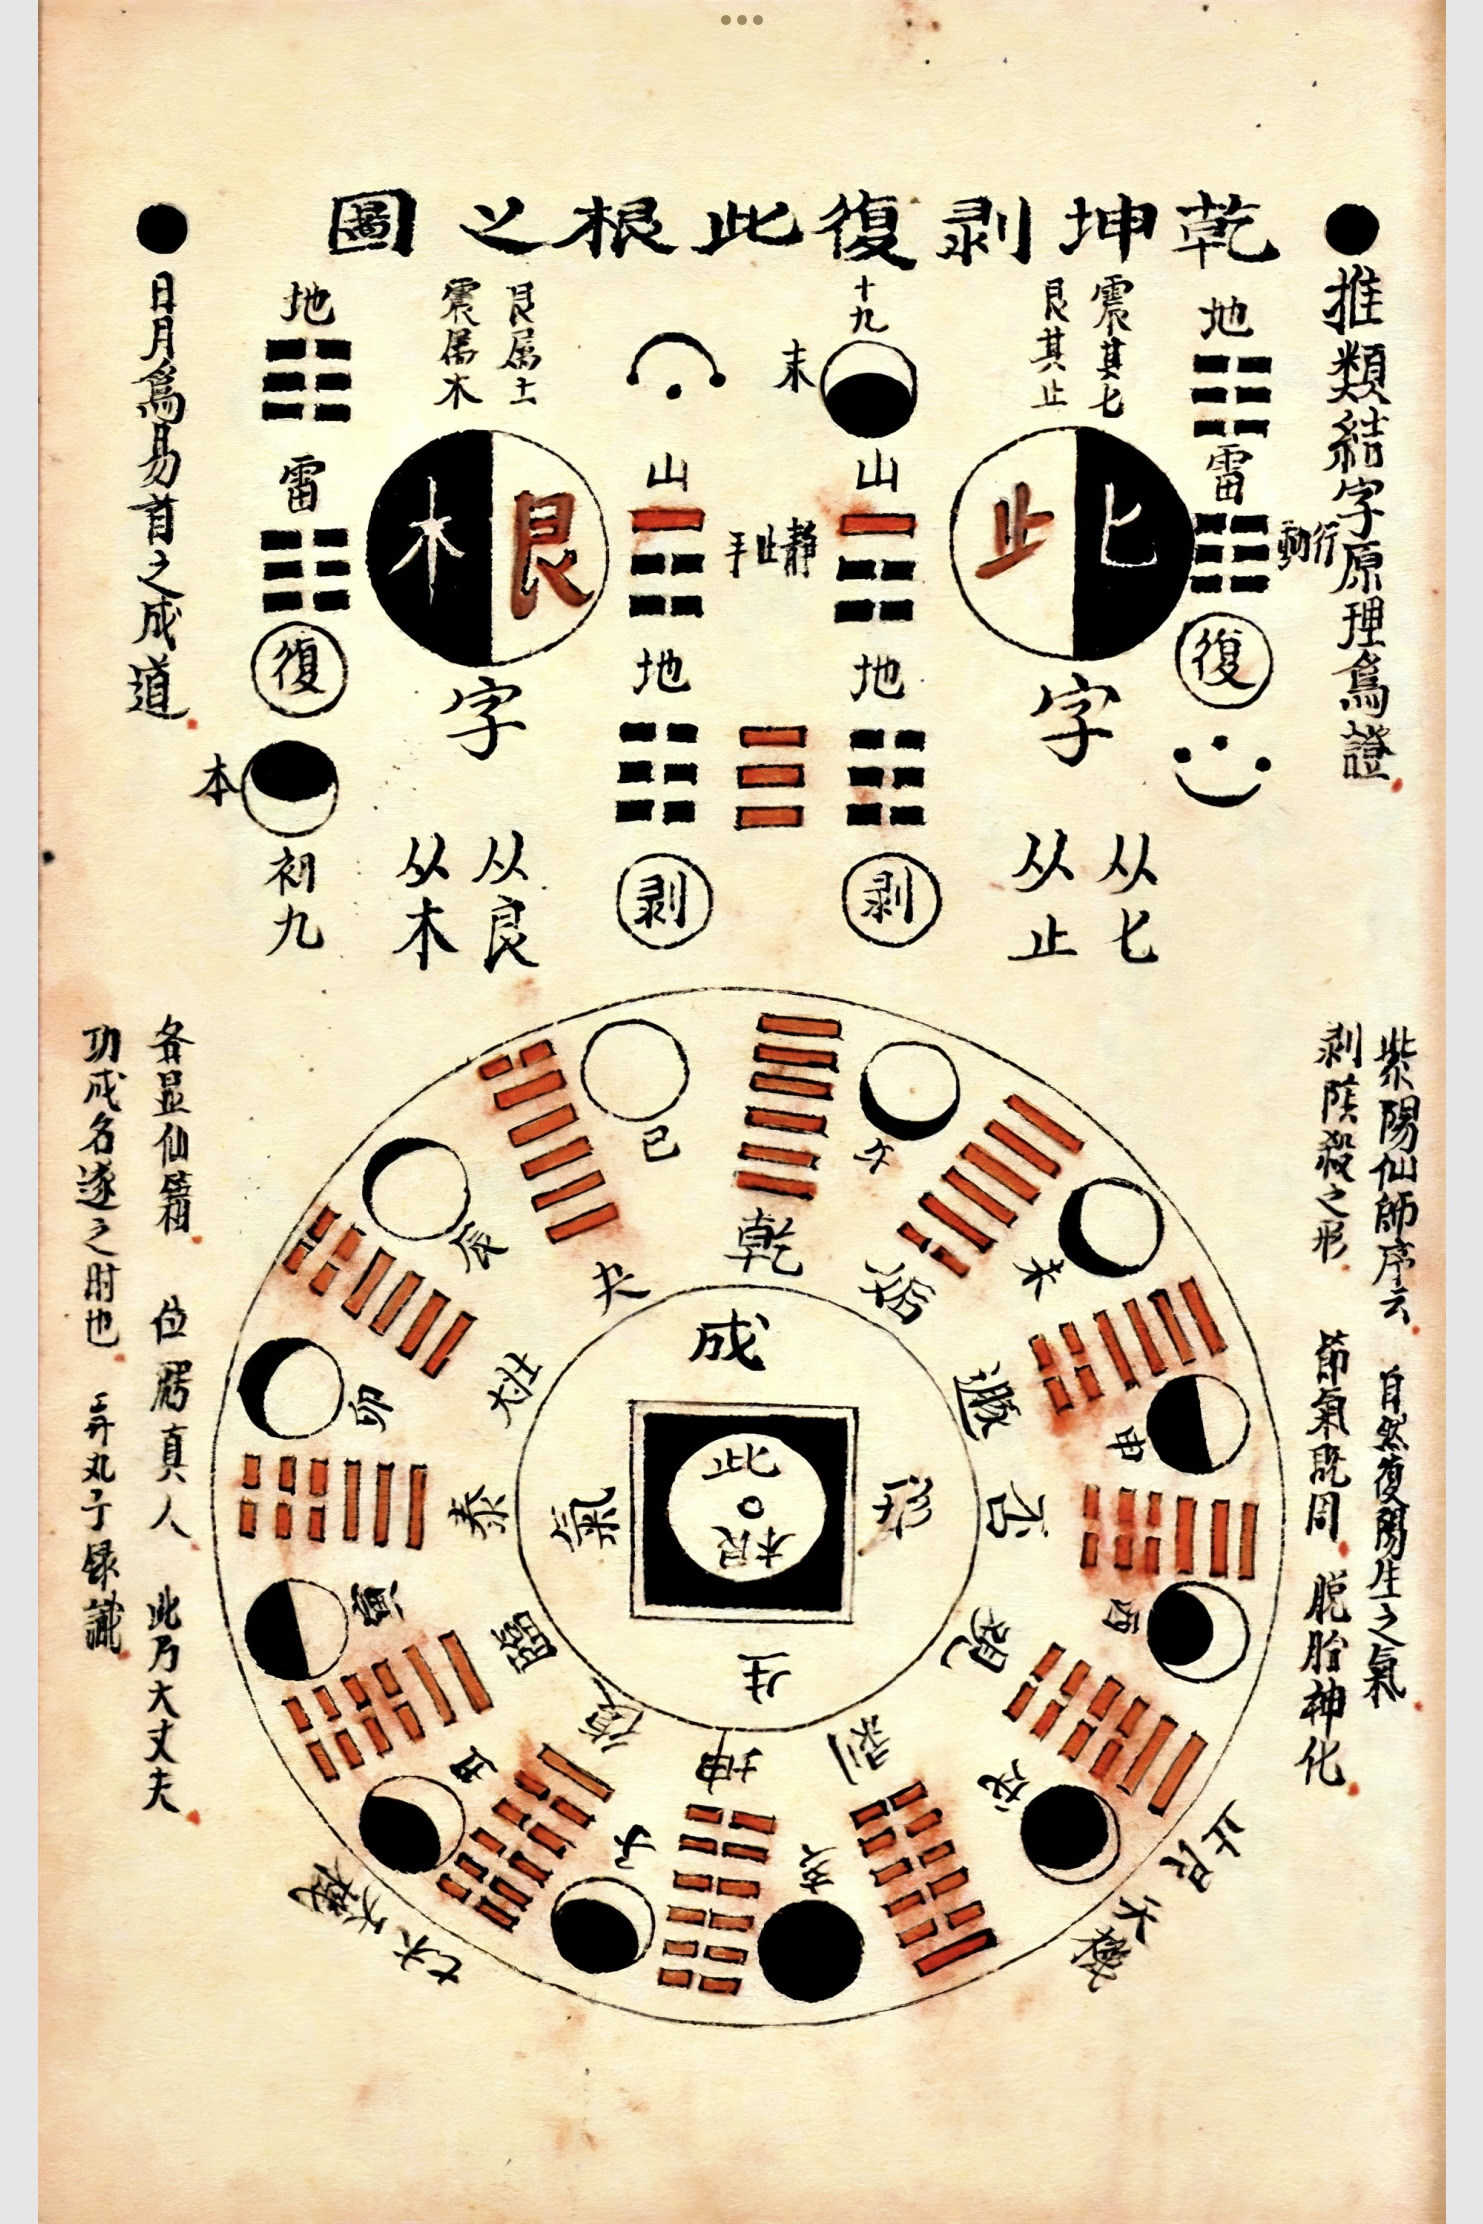 乾坤剥復此根之圖
●推類結字原理爲證
地
雷
行動
復
震其七
艮其止
止匕
字
从七
从止
十九
末
山
地
剥
靜止手
山
地
剥
艮属土
震属木
木艮
字
从艮
从木
地
雷
復
本
初九
●日月爲易首之成道
紫陽仙師序云 自然復陽生之氣
剥蔭殺之形 節氣既周 脱胎神化
乾
姤
遯
否
觀
剥
坤
復
臨
泰
大壯
夬
午
未
申
酉
戌
亥
子
丑
寅
卯
辰
巳
成
形
生
氣
此
根
止艮天機
七木天機
各显仙籍 位 真人 此乃大丈夫
功成名遂之时也 弄丸子録識